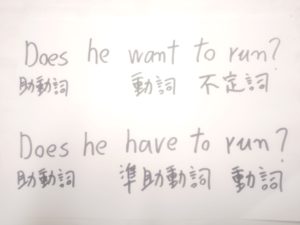 Does he want to run?
助動詞 動詞 不定詞
Does he have to run?
助動詞 準助動詞 動詞